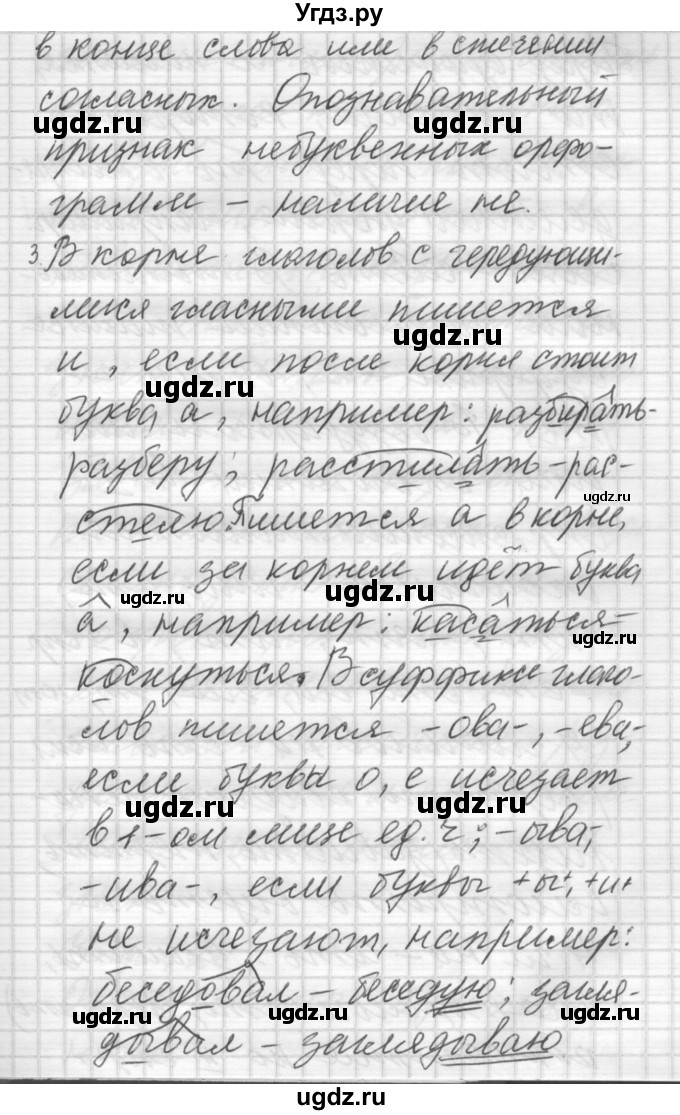 Угдз.ру
в конце слова или в стечении
согласных. Опознавательный
ugdz.ru ugdz.ru
признак небуквенных орфо-
грамм – наличие не.
3. В корне глаголов с чередующи-
мися гласными пишется
ugdz.ru
и, если после корня стоит
ugdz.ru
буква а, например: разбирать-
разберу; расстилать-рас-
ugdz.ru
стелю. Пишется а в корне,
если за корнем идёт буква
ugdz.ru
а, например: касаться-
ugdz.ru
коснуться. В суффиксе глаго-
лов пишется -ова-, -ева-,
если буквы о, е исчезает
ugdz.ru ugdz.ru
в 1-ом лице ед. ч; -ыва-,
-ива-, если буквы +ы+, +и+
не исчезают, например:
беседовал – беседую; загля-
ugdz.ru ugdz.ru ugdz.ru
дывал – заглядываю
ugdz.ru